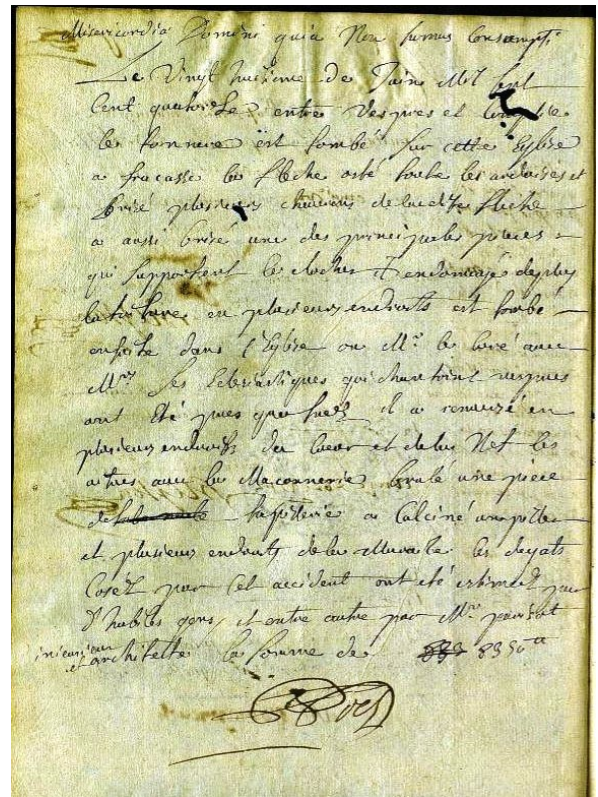 Misericordia Domini quia Non sumus Consumpti
Le Vingt huitieme de Juin Mil sept
Cent quatorse entre Vespres et Complie
le tonnere est tombé sur cette Eglise
a fracassé la fleche osté toute les ardoises et
brisé plusieurs chevrons de laditte fleche
a aussi brisé une des principale pieces
qui supportent le clocher Et endomagé de plus
la toiture en plusieurs endroits est tombé
ensuite dans l'Eglise ou Mr. le Curé avec
Mrs. les Eclesiastiques qui chantoint vespres
ont Eté pres que tuez il a renversé en
plusieurs endroits du Coeur et de la Nef les
avec la Maconnerie brulé une piece
de tapisserie a Calciné un pillier
et plusieurs endroits de la Muraille les degats
Coséz par Cet accident ont été estimez par
D'habiles gens, et entre autre par Mr.
et architette la somme de 8350 tt